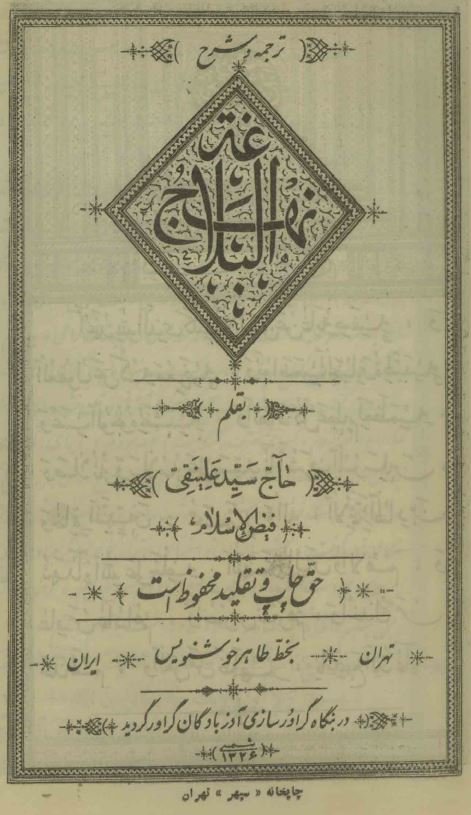 ترجمه و شرح
نهج البلاغة
بقلم
حاجّ سَیّد عَلینَقیّ
فیض الاِسلام
حقّ چاپ و تقلید محفوظ است
تهران بخطّ طاهر خوشنویس ایران
در بنگاه گراورسازی آذربادگان گراور گردید
۱۳۲۶ شمسی
چاپخانه « سپهر » تهران